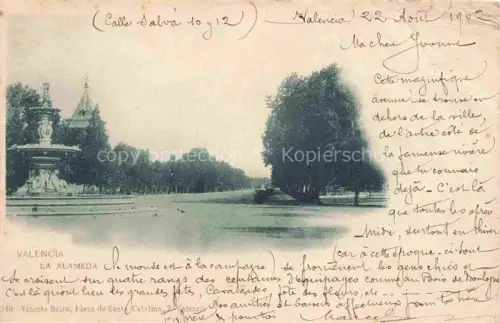 (Calle Salvá 10 y 12)
Valencia 22 Août 1902
Ma chère Yvonne
Cette magnifique
avenue se trouve en
dehors de la ville,
de l'autre côté de
la fameuse rivière
que tu connais
déjà. C'est là
que toutes les après
midi, surtout en hiver
(car à cette époque-ci tout
le monde est à la campagne) se promènent les gens chics et
se croisent sur quatre rangs des centaines d'équipages comme au Bois de Boulogne
C'est là qu'ont lieu les grandes fêtes, Cavalcades, fête des fleurs
Mes amitiés et baisers affectueux pour ton
VALENCIA
LA ALAMEDA
Vicente Beira; Plaza de Santa Catalina,
copyrightdelcampe.com picsSolution